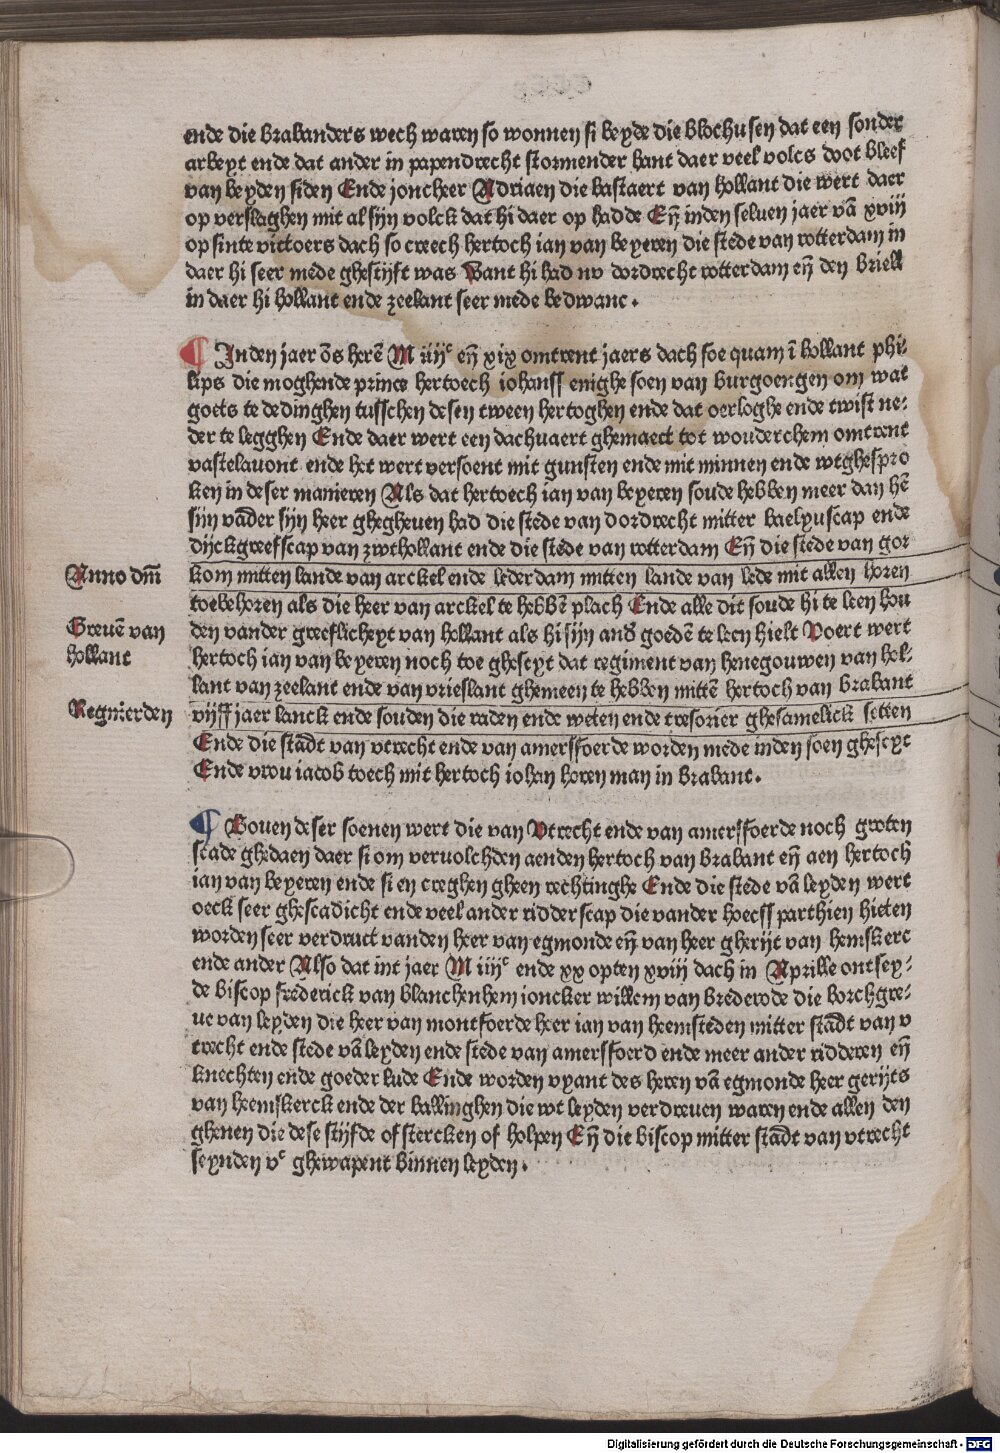 ende die Brabanders wech waren so wonnen si beyde die blochusen dat een sonder
arbeyt ende dat ander in papendrecht stormender hant daer veel volcs doot bleef
van beyden siden Ende joncheer Adriaen die bastaert van hollant die wert daer
op verslaghen mit al sijn volck dat hi daer op hadde Eñ inden seluen jaer vā xviij
op sinte victoers dach so creech hertoch ian van beyeren die stede van rotterdam in
daer hi seer mede ghestijft was Want hi had nv dordrecht rotterdam eñ den briell
in daer hi hollant ende zeelant seer mede bedwanc.
¶ Inden jaer ōs herē M iiijᶜ eñ xix omtrent jaers dach soe quam ī hollant phi
lips die moghende prince hertoech iohanss enighe soen van burgoengen om wat
goets te dedinghen tusschen desen tween hertoghen ende dat oerloghe ende twist ne⸗
der te legghen Ende daer wert een dachuaert ghemaect tot wouderchem omtrent
vastelauont ende het wert versoent mit gunsten ende mit minnen ende wtghespro
ken in deser manieren Als dat hertoech ian van beyeren soude hebben meer dan hē
sijn vad̄er sijn heer ghegheuen had die stede van dordrecht mitter baelyuscap ende
dijckgreefscap van zwthollant ende die stede van rotterdam Eñ die stede van gor
kom mitten lande van arckel ende lederdam mitten lande van lede mit allen horen
toebehoren als die heer van arckel te hebbē plach Ende alle dit soude hi te leen hou
den vander greeflicheyt van hollant als hi sijn and̄ goedē te leen hielt Voert wert
hertoch ian van beyeren noch toe gheseyt dat regiment van henegouwen van hol⸗
lant van zeelant ende van vrieslant ghemeen te hebben mittē hertoch van brabant
vijff jaer lanck ende souden die raden ende weten ende tresorier ghesamelick setten
Ende die stadt van vtrecht ende van amersfoerde worden mede inden soen gheseyt
Ende vrou iacob toech mit hertoch iohan horen man in brabant.
Anno dm̄
Greuē van
hollant
Regnierden
¶ Bouen deser soenen wert die van Vtrecht ende van amersfoerde noch groten
scade ghedaen daer si om veruolchden aenden hertoch van brabant eñ aen hertoch
ian van beyeren ende si en creghen gheen rechtinghe Ende die stede vā leyden wert
oeck seer ghescadicht ende veel ander ridderscap die vander hoecss parthien hieten
worden seer verdruct vanden heer van egmonde eñ van heer gherijt van hemskerc
ende ander Also dat int jaer M iiijᶜ ende xx opten xviij dach in Aprille ontsey⸗
de biscop frederick van blanchenhem ioncker willem van brederode die borchgre⸗
ue van leyden die heer van montfoerde heer ian van heemsteden mitter stadt van v
trecht ende stede vā leyden ende stede van amersfoerd ende meer ander ridderen eñ
knechten ende goeder lude Ende worden vyant des heren vā egmonde heer gerijts
van heemskerck ende der ballinghen die wt leyden verdreuen waren ende allen den
ghenen die dese stijfde of stercken of holpen Eñ die biscop mitter stadt van vtrecht
seynden vᶜ ghewapent binnen leyden.
Digitalisierung gefördert durch die Deutsche Forschungsgemeinschaft - DFG